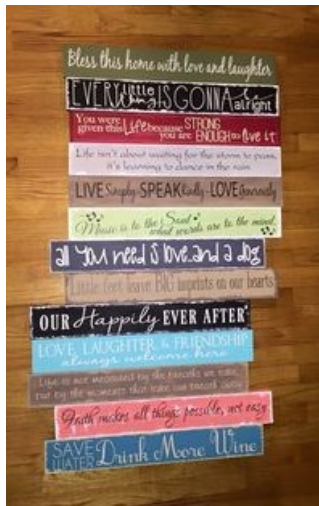 Bless this home with love and laughter
EVERY little thing IS GONNA be alright
You were given this Life because you are STRONG ENOUGH to live it
Life isn't about waiting for the storm to pass,
it's learning to dance in the rain
LIVE Simply - SPEAK Kindly - LOVE Generously
Music is to the Soul
what words are to the mind
all you need is love. and a dog
Little feet leave BIG imprints on our hearts
OUR Happily EVER AFTER
LOVE, LAUGHTER, & FRIENDSHIP
always welcome here
Life is not measured by the breaths we take,
but by the moments that take our breath away
Faith makes all things possible, not easy
SAVE WATER Drink More Wine